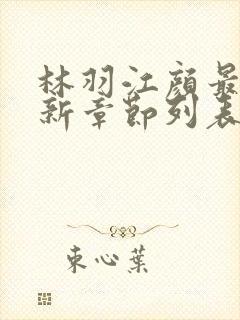 林羽江顏最
新章節列表
束心葉